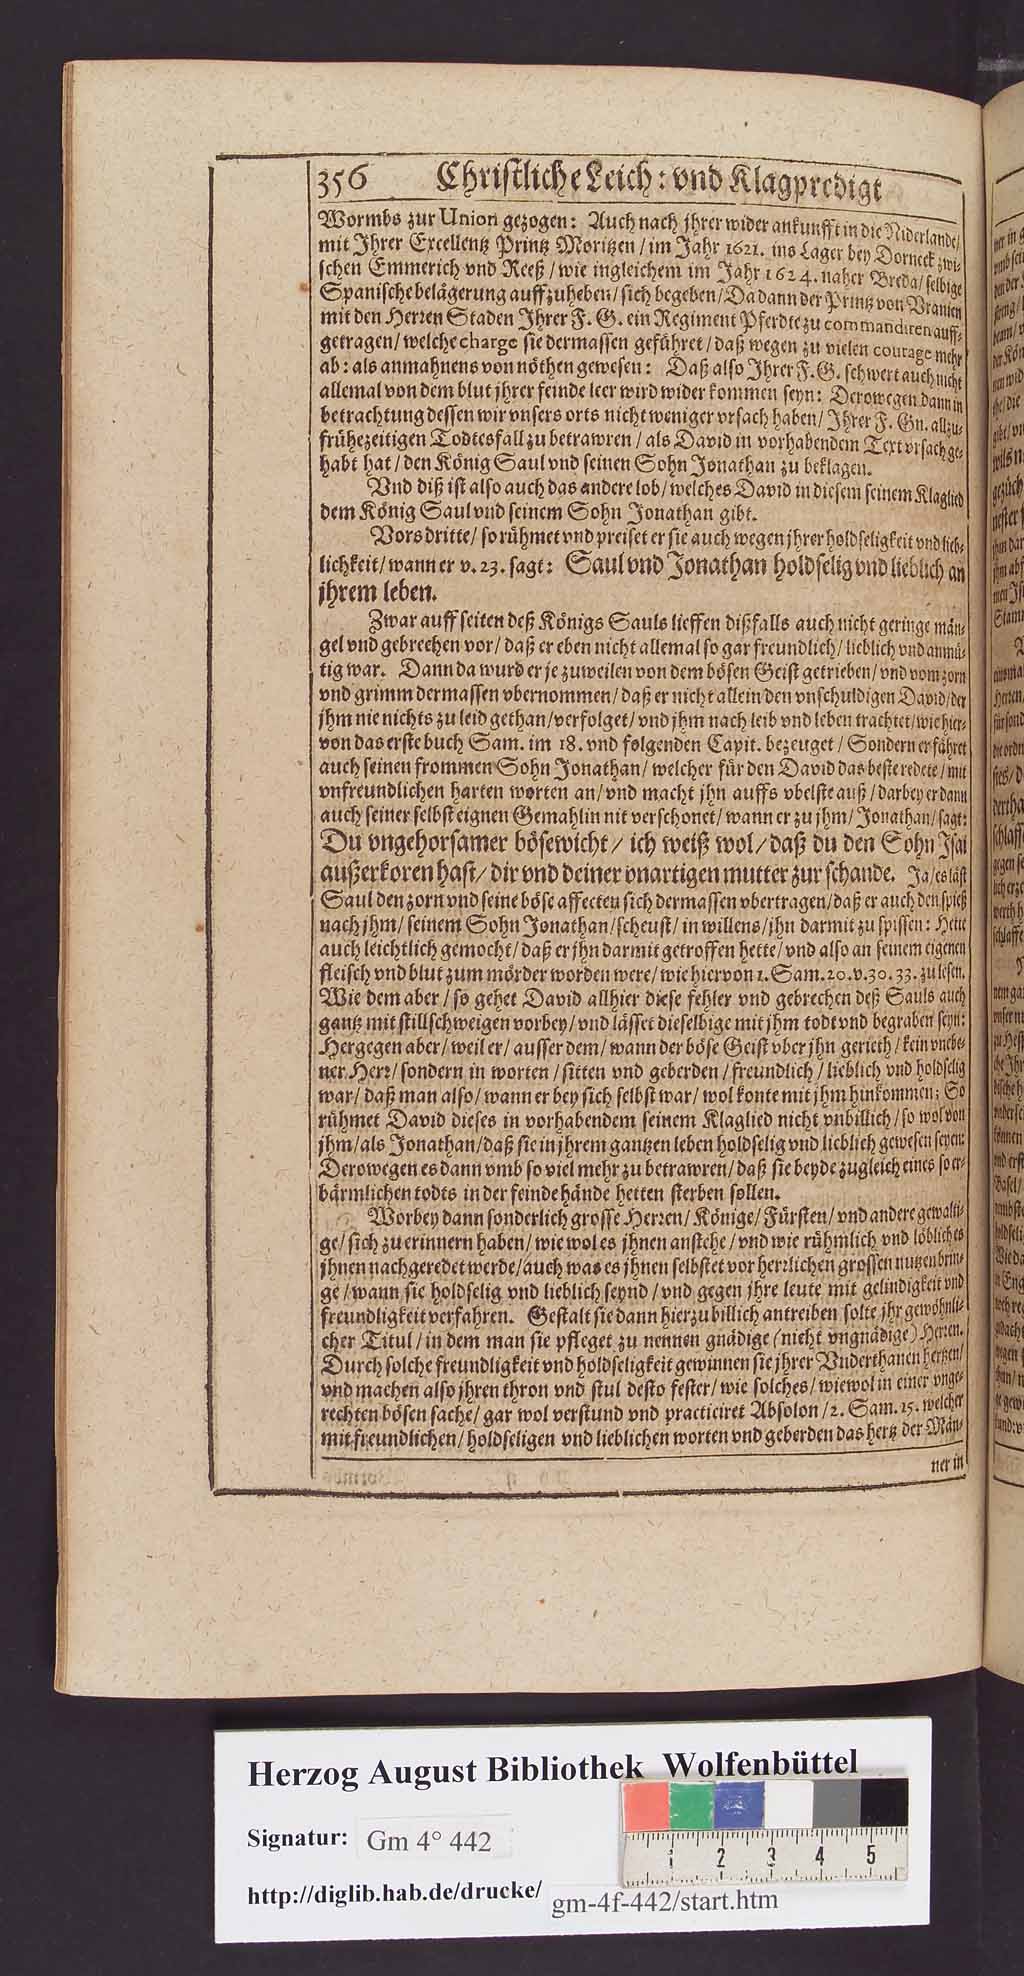 356 Christliche Leich: vnd Klagpredigt
Wormbs zur Union gezogen: Auch nach jhrer wider ankunfft in die Niderlande/
mit Ihrer Excellentz Printz Moritzen/ im Jahr 1621. ins Lager bey Dorneck zwi-
schen Emmerich vnd Reeß/ wie ingleichem im Jahr 1624. naher Breda/ selbige
Spanische belägerung auffzuheben/ sich begeben/ Da dann der Printz von Vranien
mit den Herren Staden Ihrer F. G. ein Regiment Pferdte zu commandiren auff-
getragen/ welche charge sie dermassen geführet/ daß wegen zu vielen courage mehr
ab: als anmahnens von nöthen gewesen: Daß also Ihrer F. G. schwert auch nicht
allemal von dem blut jhrer feinde leer wird wider kommen seyn: Derowegen dann in
betrachtung dessen wir vnsers orts nicht weniger vrsach haben/ Ihrer F. Gn. allzu-
frühezeitigen Todtesfall zu betrawren/ als David in vorhabendem Text vrsach ge-
habt hat/ den König Saul vnd seinen Sohn Jonathan zu beklagen.
Vnd diß ist also auch das andere lob/ welches David in diesem seinem Klaglied
dem König Saul vnd seinem Sohn Jonathan gibt.
Vors dritte/ so rühmet vnd preiset er sie auch wegen jhrer holdseligkeit vnd lieb-
lichkeit/ wann er v. 23. sagt: Saul vnd Jonathan holdselig vnd lieblich an
jhrem leben.
Zwar auff seiten deß Königs Sauls lieffen dißfalls auch nicht geringe män-
gel vnd gebrechen vor/ daß er eben nicht allemal so gar freundlich/ lieblich vnd anmü-
tig war. Dann da wurd er je zuweilen von dem bösen Geist getrieben/ vnd vom zorn
vnd grimm dermassen vbernommen/ daß er nicht allein den vnschuldigen David/ der
jhm nie nichts zu leid gethan/ verfolget/ vnd jhm nach leib vnd leben trachtet/ wie hier-
von das erste buch Sam. im 18. vnd folgenden Capit. bezeuget/ Sondern er fähret
auch seinen frommen Sohn Jonathan/ welcher für den David das beste redete/ mit
vnfreundlichen harten worten an/ vnd macht jhn auffs vbelste auß/ darbey er dann
auch seiner selbst eignen Gemahlin nit verschonet/ wann er zu jhm/ Jonathan/ sagt:
Du vngehorsamer bösewicht/ ich weiß wol/ daß du den Sohn Isai
außerkoren hast/ dir vnd deiner vnartigen mutter zur schande. Ja/ es läst
Saul den zorn vnd seine böse affecten sich dermassen vbertragen/ daß er auch den spieß
nach jhm/ seinem Sohn Jonathan/ scheust/ in willens/ jhn darmit zu spissen: Hette
auch leichtlich gemocht/ daß er jhn darmit getroffen hette/ vnd also an seinem eigenen
fleisch vnd blut zum mörder worden were/ wie hiervon 1. Sam. 20. v. 30. 33. zu lesen.
Wie dem aber/ so gehet David allhier diese fehler vnd gebrechen deß Sauls auch
gantz mit stillschweigen vorbey/ vnd lässet dieselbige mit jhm todt vnd begraben seyn:
Hergegen aber/ weil er/ ausser dem/ wann der böse Geist vber jhn gerieth/ kein vnebe-
ner Herr/ sondern in worten/ sitten vnd geberden/ freundlich/ lieblich vnd holdselig
war/ daß man also/ wann er bey sich selbst war/ wol konte mit jhm hinkommen; So
rühmet David dieses in vorhabendem seinem Klaglied nicht vnbillich/ so wol von
jhm/ als Jonathan/ daß sie in jhrem gantzen leben holdselig vnd lieblich gewesen seyen:
Derowegen es dann vmb so viel mehr zu betrawren/ daß sie beyde zugleich eines so er-
bärmlichen todts in der feinde hände hetten sterben sollen.
Worbey dann sonderlich grosse Herren/ Könige/ Fürsten/ vnd andere gewalti-
ge/ sich zu erinnern haben/ wie wol es jhnen anstehe/ vnd wie rühmlich vnd löbliches
jhnen nachgeredet werde/ auch was es jhnen selbstet vor herrlichen grossen nutzen brin-
ge/ wann sie holdselig vnd lieblich seynd/ vnd gegen jhre leute mit gelindigkeit vnd
freundligkeit verfahren. Gestalt sie dann hierzu billich antreiben solte jhr gewöhnli-
cher Titul/ in dem man sie pfleget zu nennen gnädige (nicht vngnädige) Herren.
Durch solche freundligkeit vnd holdseligkeit gewinnen sie jhrer Vnderthanen hertzen/
vnd machen also jhren thron vnd stul desto fester/ wie solches/ wiewol in einer vnge-
rechten bösen sache/ gar wol verstund vnd practiciret Absolon/ 2. Sam. 15. welcher
mit freundlichen/ holdseligen vnd lieblichen worten vnd geberden das hertz der Män-
ner in
Herzog August Bibliothek Wolfenbüttel
Signatur: Gm 4° 442
http://diglib.hab.de/drucke/ gm-4f-442/start.htm
1 2 3 4 5